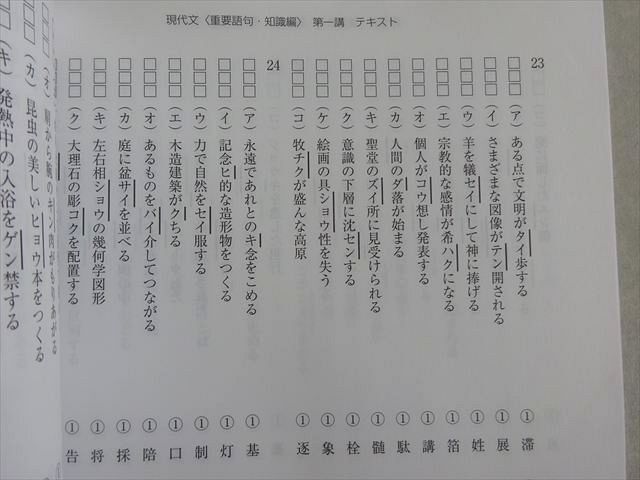 現代文〈重要語句・知識編〉 第一講 テキスト
23
□□□ (ア) ある点で文明がタイ歩する ① 滞
□□□ (イ) さまざまな図像がテン開される ① 展
□□□ (ウ) 羊を犠セイにして神に捧げる ① 姓
□□□ (エ) 宗教的な感情が希ハクになる ① 箔
□□□ (オ) 個人がコウ想し発表する ① 講
□□□ (カ) 人間のダ落が始まる ① 駄
□□□ (キ) 聖堂のズイ所に見受けられる ① 髄
□□□ (ク) 意識の下層に沈センする ① 栓
□□□ (ケ) 絵画の具ショウ性を失う ① 象
□□□ (コ) 牧チクが盛んな高原 ① 逐
24
□□□ (ア) 永遠であれとのキ念をこめる ① 基
□□□ (イ) 記念ヒ的な造形物をつくる ① 灯
□□□ (ウ) 力で自然をセイ服する ① 制
□□□ (エ) 木造建築がクちる ① 口
□□□ (オ) あるものをバイ介してつながる ① 陪
□□□ (カ) 庭に盆サイを並べる ① 採
□□□ (キ) 左右相ショウの幾何学図形 ① 将
□□□ (ク) 大理石の彫コクを配置する ① 告
(オ) 肩から腕のキン肉がもりあがる
□□□ (カ) 昆虫の美しいヒョウ本をつくる
(キ) 発熱中の入浴をゲン禁する